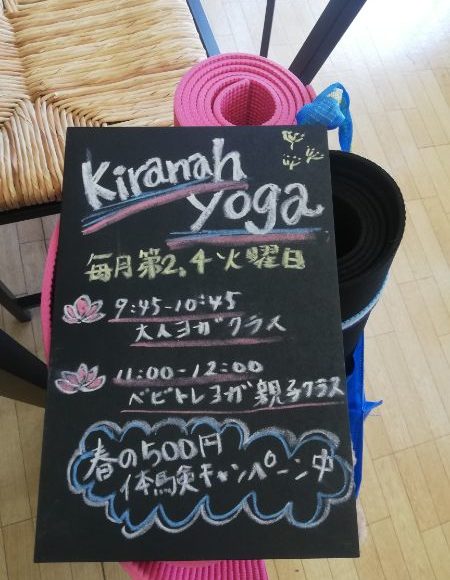 Kiranah
yoga
毎月第2,4火曜日
9:45-10:45
大人ヨガクラス
11:00-12:00
ベビトレヨガ親子クラス
春の500円
体験キャンペーン中